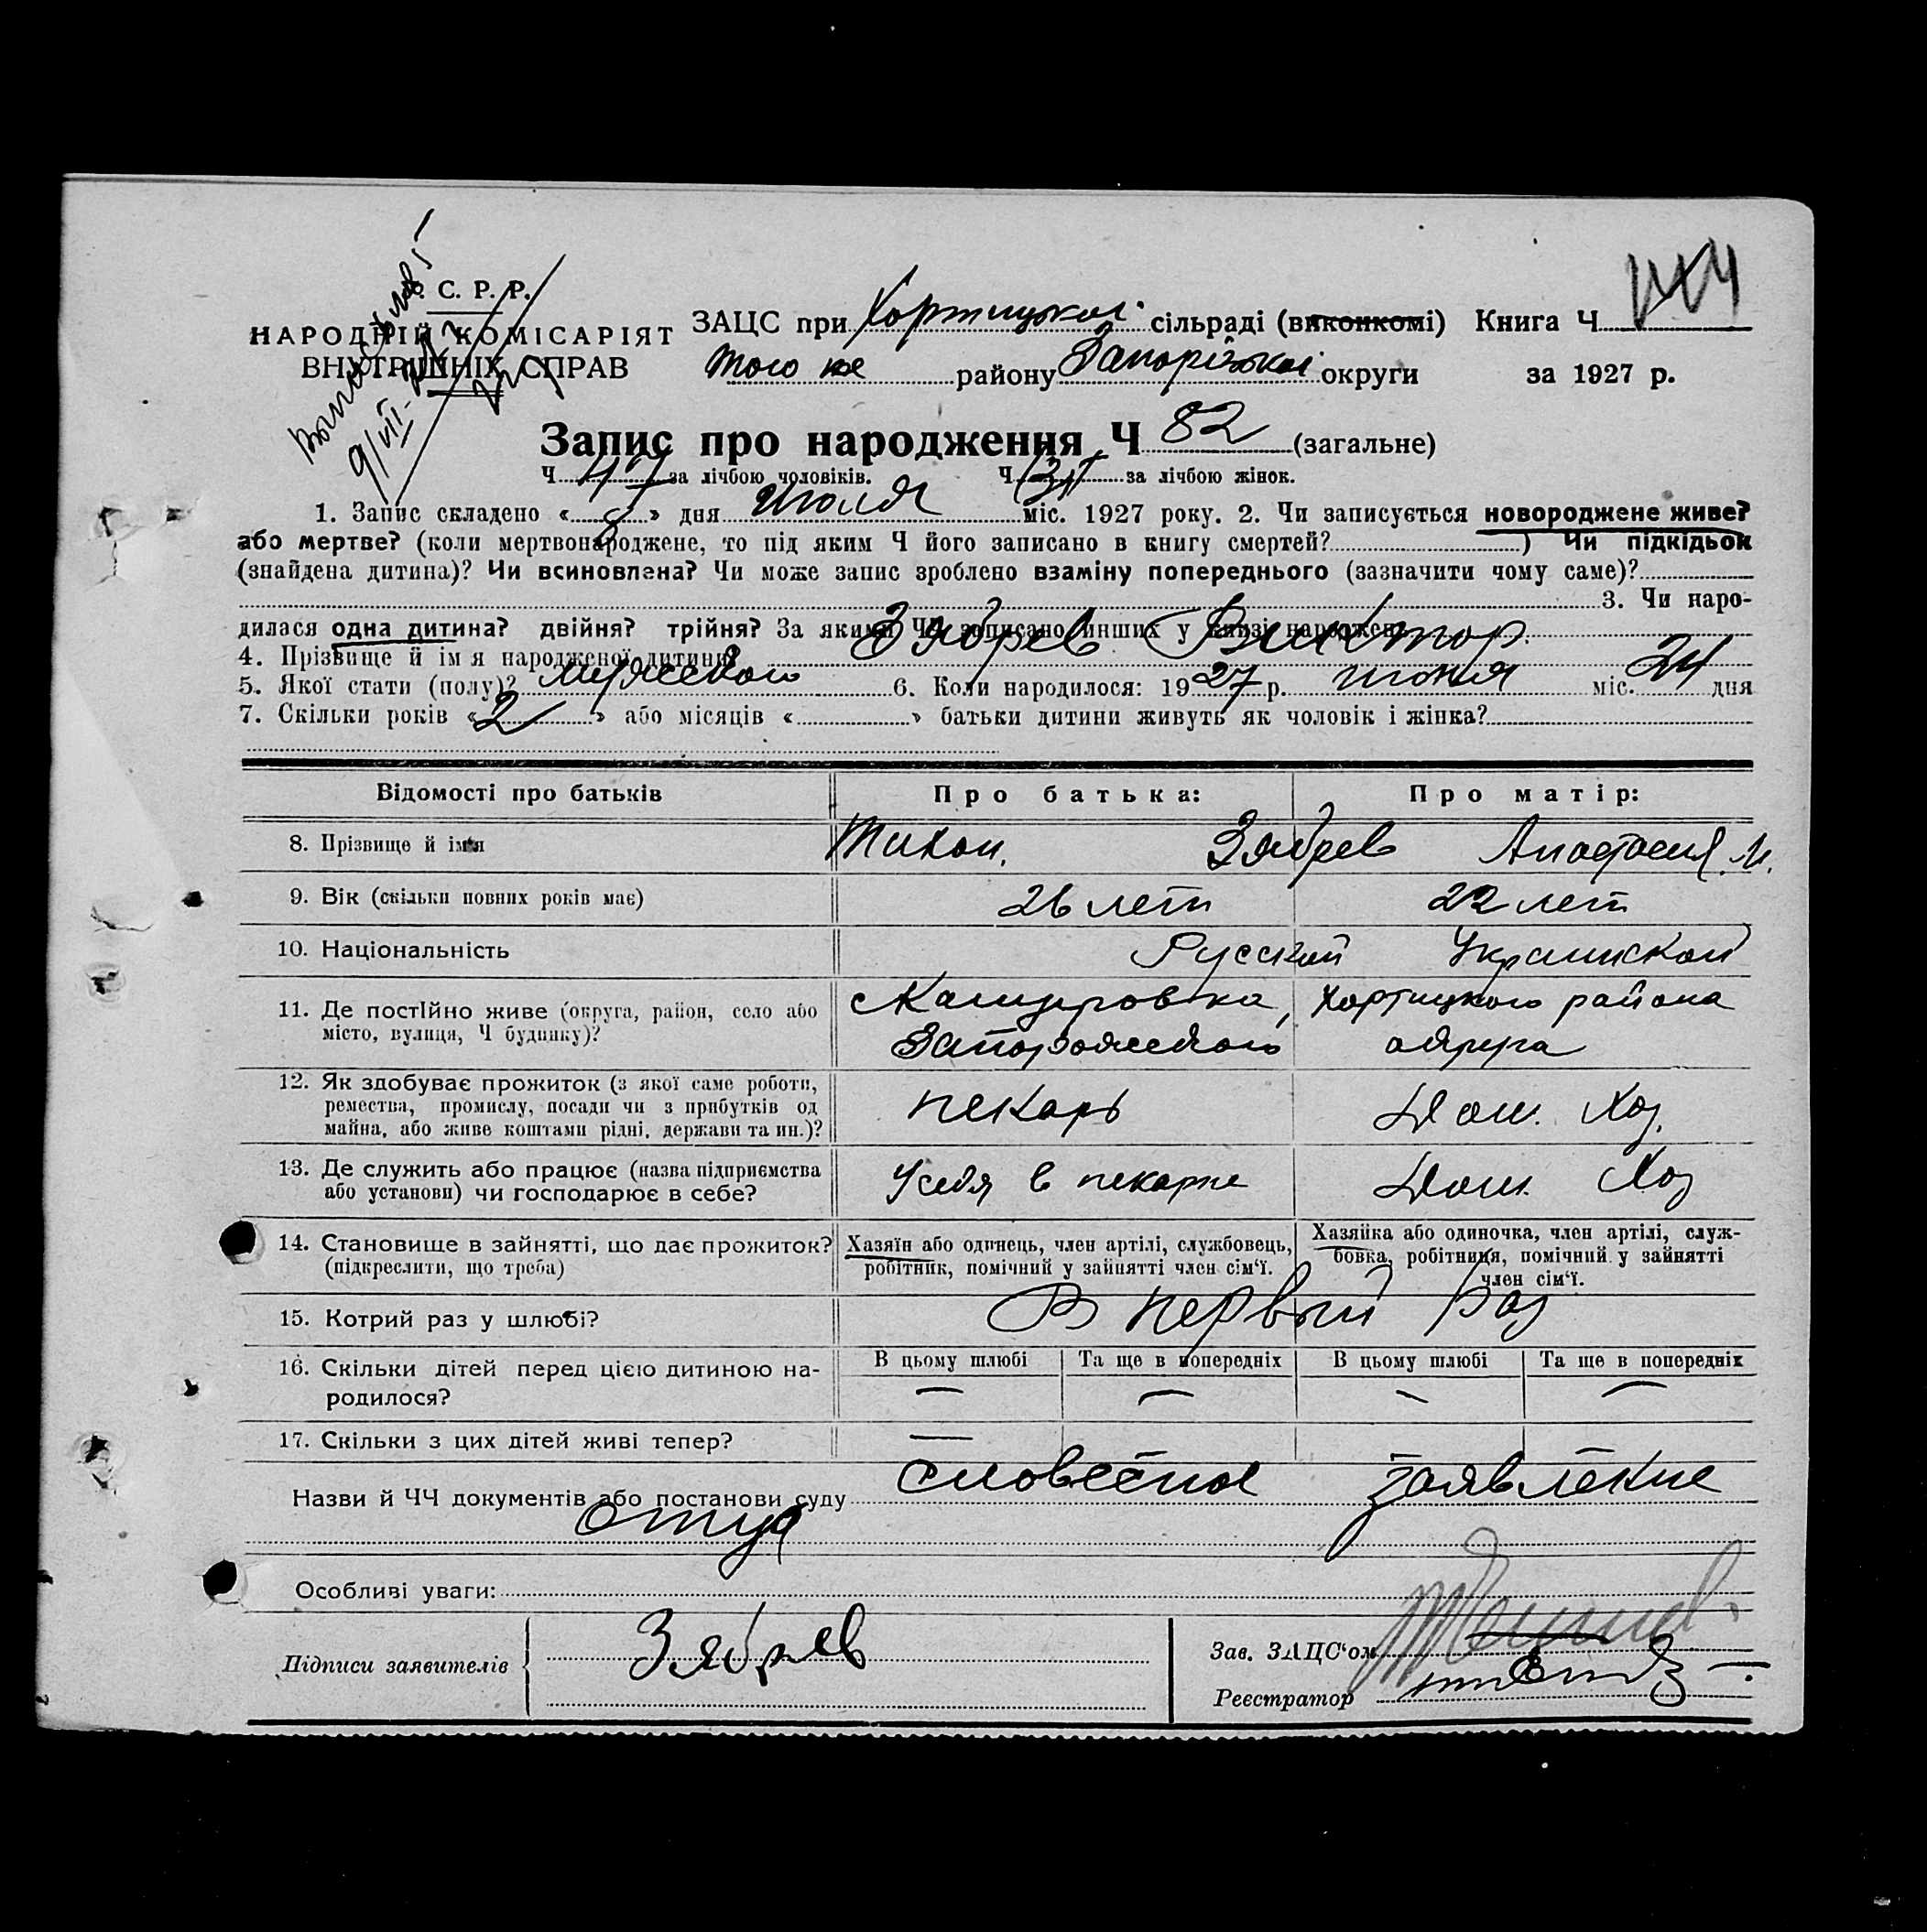 С. Р. Р.
НАРОДНІЙ КОМІСАРІЯТ
ВНУТРІШНІХ СПРАВ
9/VII-27
ЗАЦС при Хортицької сільраді (виконкомі) Книга Ч
того же району Запоріжької округи за 1927 р.
Запис про народження Ч 82 (загальне)
Ч 47 за лічбою чоловіків. Ч за лічбою жінок.
1. Запис складено « 9 » дня июля міс. 1927 року. 2. Чи записується новороджене живе?
або мертве? (коли мертвонароджене, то під яким Ч його записано в книгу смертей? ) Чи підкідьок
(знайдена дитина)? Чи всиновлена? Чи може запис зроблено взаміну попереднього (зазначити чому саме)?
3. Чи наро-
дилася одна дитина? двійня? трійня? За якими ЧЧ записано инших у книзі народжен
4. Прізвище й імя народженої дитини? Зябрев Виктор.
5. Якої стати (полу)? мужеского 6. Коли народилося: 1927 р. июня міс. 24 дня
7. Скільки років « 2 » або місяців « » батьки дитини живуть як чоловік і жінка?
Відомості про батьків Про батька: Про матір:
8. Прізвище й імя Тихон. Зябрев Анастасия. М.
9. Вік (скільки повних років має) 26 лет 22 лет
10. Національність Русский Украинской
11. Де постійно живе (округа, район, село або Хортицкого района
місто, вулиця, Ч будинку)? Запорожского округа
12. Як здобуває прожиток (з якої саме роботи,
ремества, промислу, посади чи з прибутків од пекарь Дом. Хоз.
майна, або живе коштами рідні, держави та ин.)?
13. Де служить або працює (назва підприємства У себя в пекарне Дом. Хоз
або установи) чи господарює в себе?
14. Становище в зайнятті, що дає прожиток? Хазяїн або одинець, член артілі, службовець, Хазяйка або одиночка, член артілі, служ-
(підкреслити, що треба) робітник, помічний у зайнятті член сім'ї. бовка, робітниця, помічний у зайнятті
член сім'ї.
15. Котрий раз у шлюбі? В первый раз
16. Скільки дітей перед цією дитиною на- В цьому шлюбі Та ще в попередніх В цьому шлюбі Та ще в попередніх
родилося? — — — —
17. Скільки з цих дітей живі тепер? —
Назви й ЧЧ документів або постанови суду словесное заявление
отца
Особливі уваги:
Підписи заявителів Зябрев Зав. ЗАЦС'ом
Реєстратор